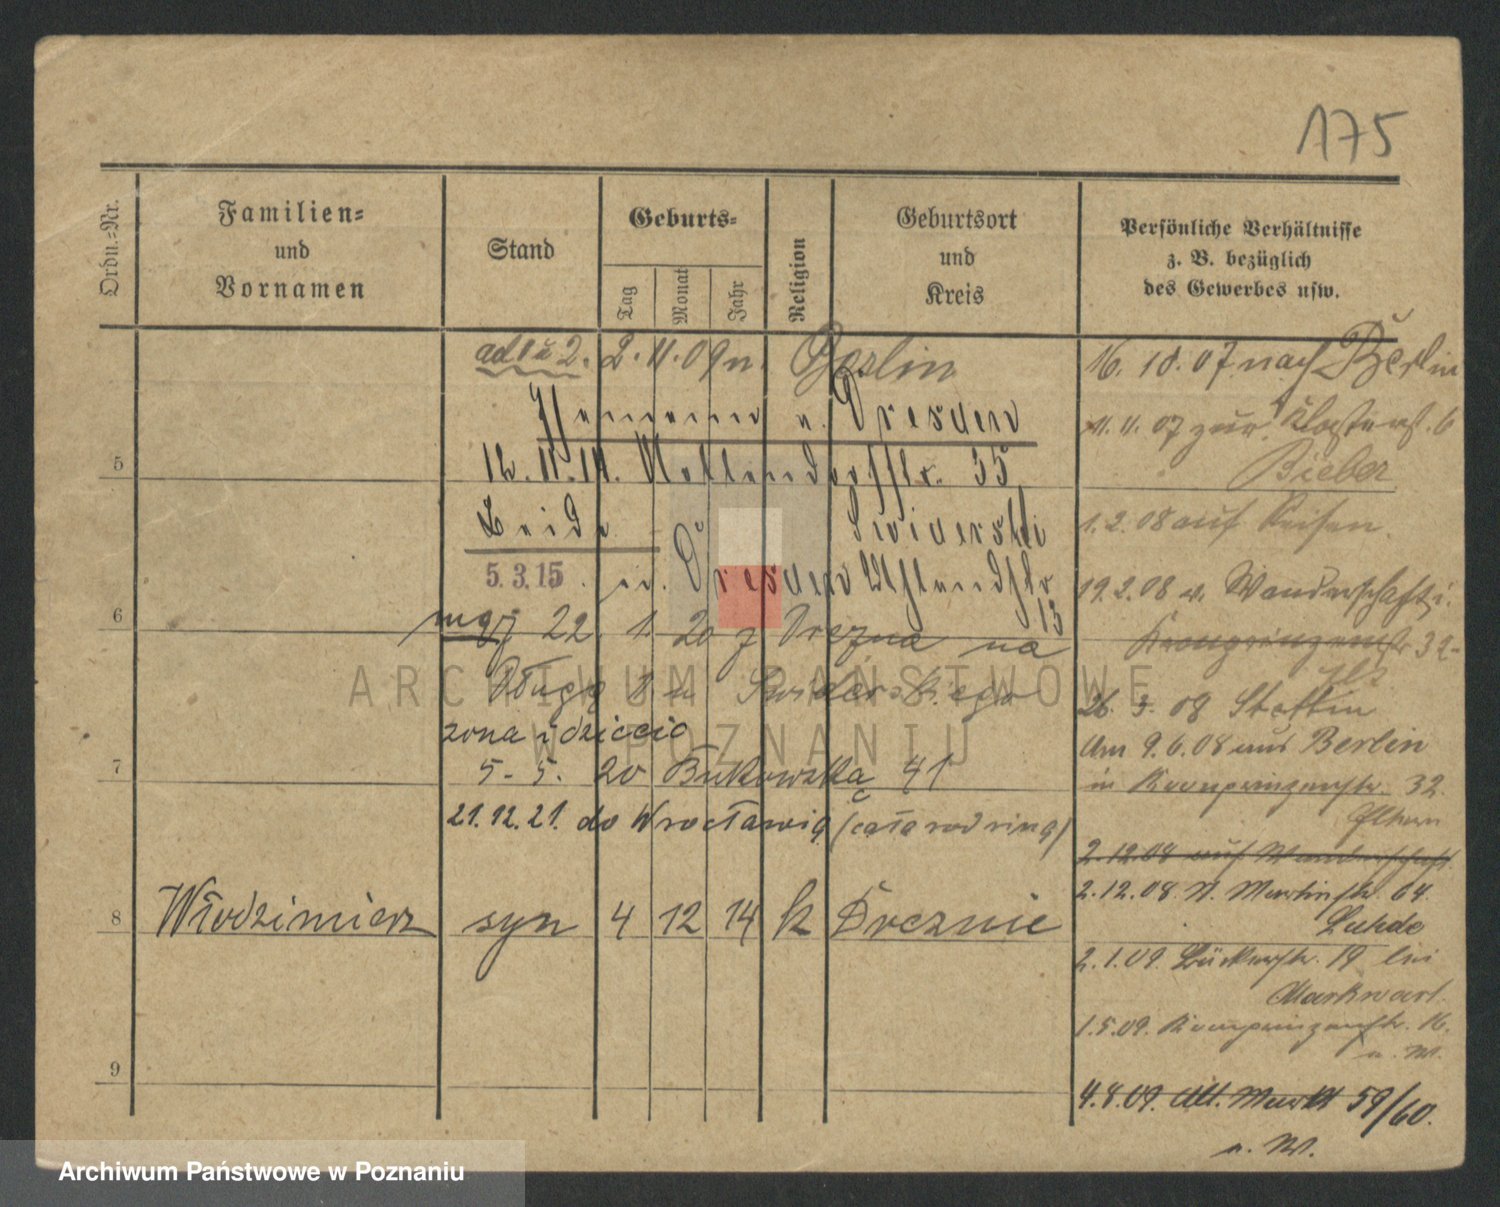 175
Ordn.-Nr.
Familien-
und
Vornamen
Stand
Geburts-
Tag
Monat
Jahr
Religion
Geburtsort
und
Kreis
Persönliche Verhältnisse
z. B. bezüglich
des Gewerbes usw.
ad 1 u 2. 2. 11. 09 n. Berlin
n. Dresden
12. 11. 14. 35
5
5.3.15. Dresden
13
6
mąż 22. 1. 20 z Drezna na
Długą 8 u Swiderskiego
żona i dziecię
5. 5. 20 Bukowska 41
7
21.12.21. do Wrocławia (cała rodzina)
8 Włodzimierz syn 4 12 14 k Dreznie
9
16. 10. 07 nach Berlin
11. 11. 07 zur. 6
Bieber
1. 2. 08 auf Reisen.
19. 2. 08 v. Wanderschaft i.
Kronprinzenstr 32
26. 3. 08 Stettin
Am 9. 6. 08 aus Berlin
in Kronprinzenstr. 32.
2. 12. 08 auf Wanderschaft
2. 12. 08. St. Martinstr. 64.
2. 1. 09. 19 bei
Markwart.
1. 5. 09. Kronprinzenstr. 16.
n. W.
4. 8. 09. Alt. Markt 59/60.
n. W.
ARCHIWUM PAŃSTWOWE
W POZNANIU
Archiwum Państwowe w Poznaniu